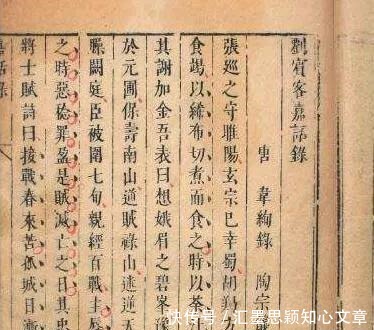 劉賓客嘉話錄
唐 韋絢錄 陶宗
張巡之守睢陽玄宗已幸蜀胡羯方
食竭以絺布切煮而食之時以茶
其謝加金吾表曰想娥眉之碧峯
於元圃保壽南山逆賊祿山迷逆天
臊闕庭臣被圍七旬親經百戰主辱
之時惡稔罪盈是賊滅亡之日其忠
將士賦詩曰接戰春來苦孤城日漸
嘉話錄
快传号/汇荟思颖知心文章